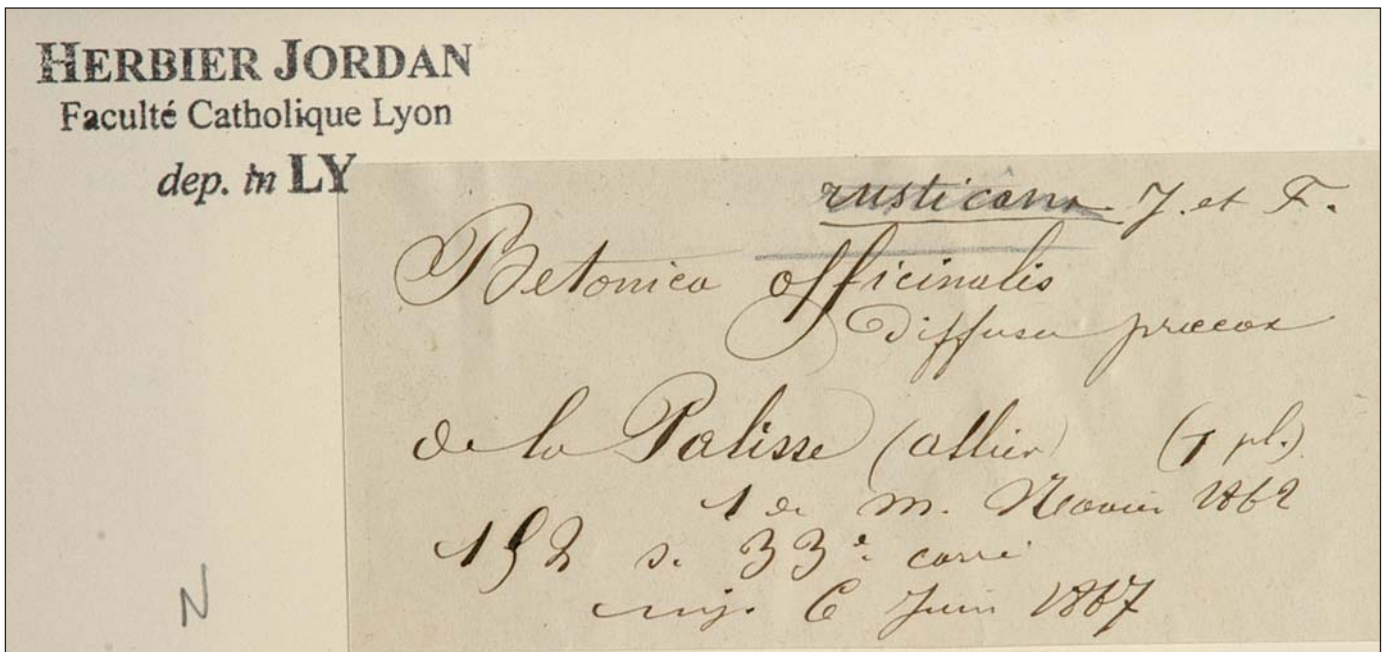 HERBIER JORDAN
Faculté Catholique Lyon
dep. in LY
rusticana J. et F.
Betonica officinalis
diffusa præcox
de la Palisse (allier) (1 pl.)
1 de m. 1862
192 s. 33e. carré
6 Juin 1867
N